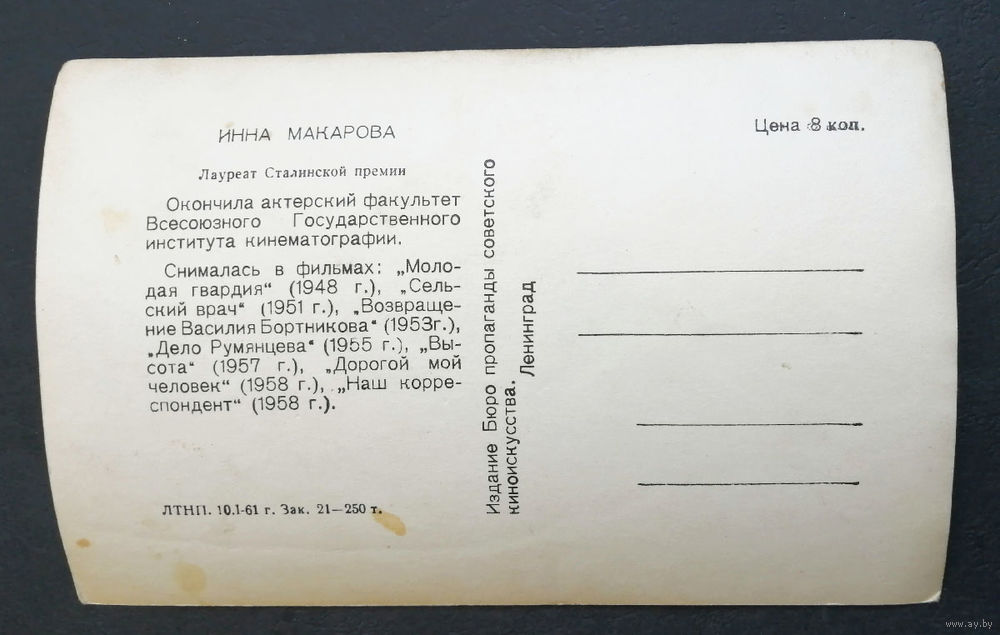 ИННА МАКАРОВА
Лауреат Сталинской премии
Окончила актерский факультет
Всесоюзного Государственного
института кинематографии.
Снималась в фильмах: „Моло-
дая гвардия“ (1948 г.), „Сель-
ский врач“ (1951 г.), „Возвраще-
ние Василия Бортникова“ (1953г.),
„Дело Румянцева“ (1955 г.), „Вы-
сота“ (1957 г.), „Дорогой мой
человек“ (1958 г.), „Наш корре-
спондент“ (1958 г.).
ЛТНП. 10.I-61 г. Зак. 21—250 т.
Издание Бюро пропаганды советского
киноискусства.
Ленинград
Цена 8 коп.
www.ay.by